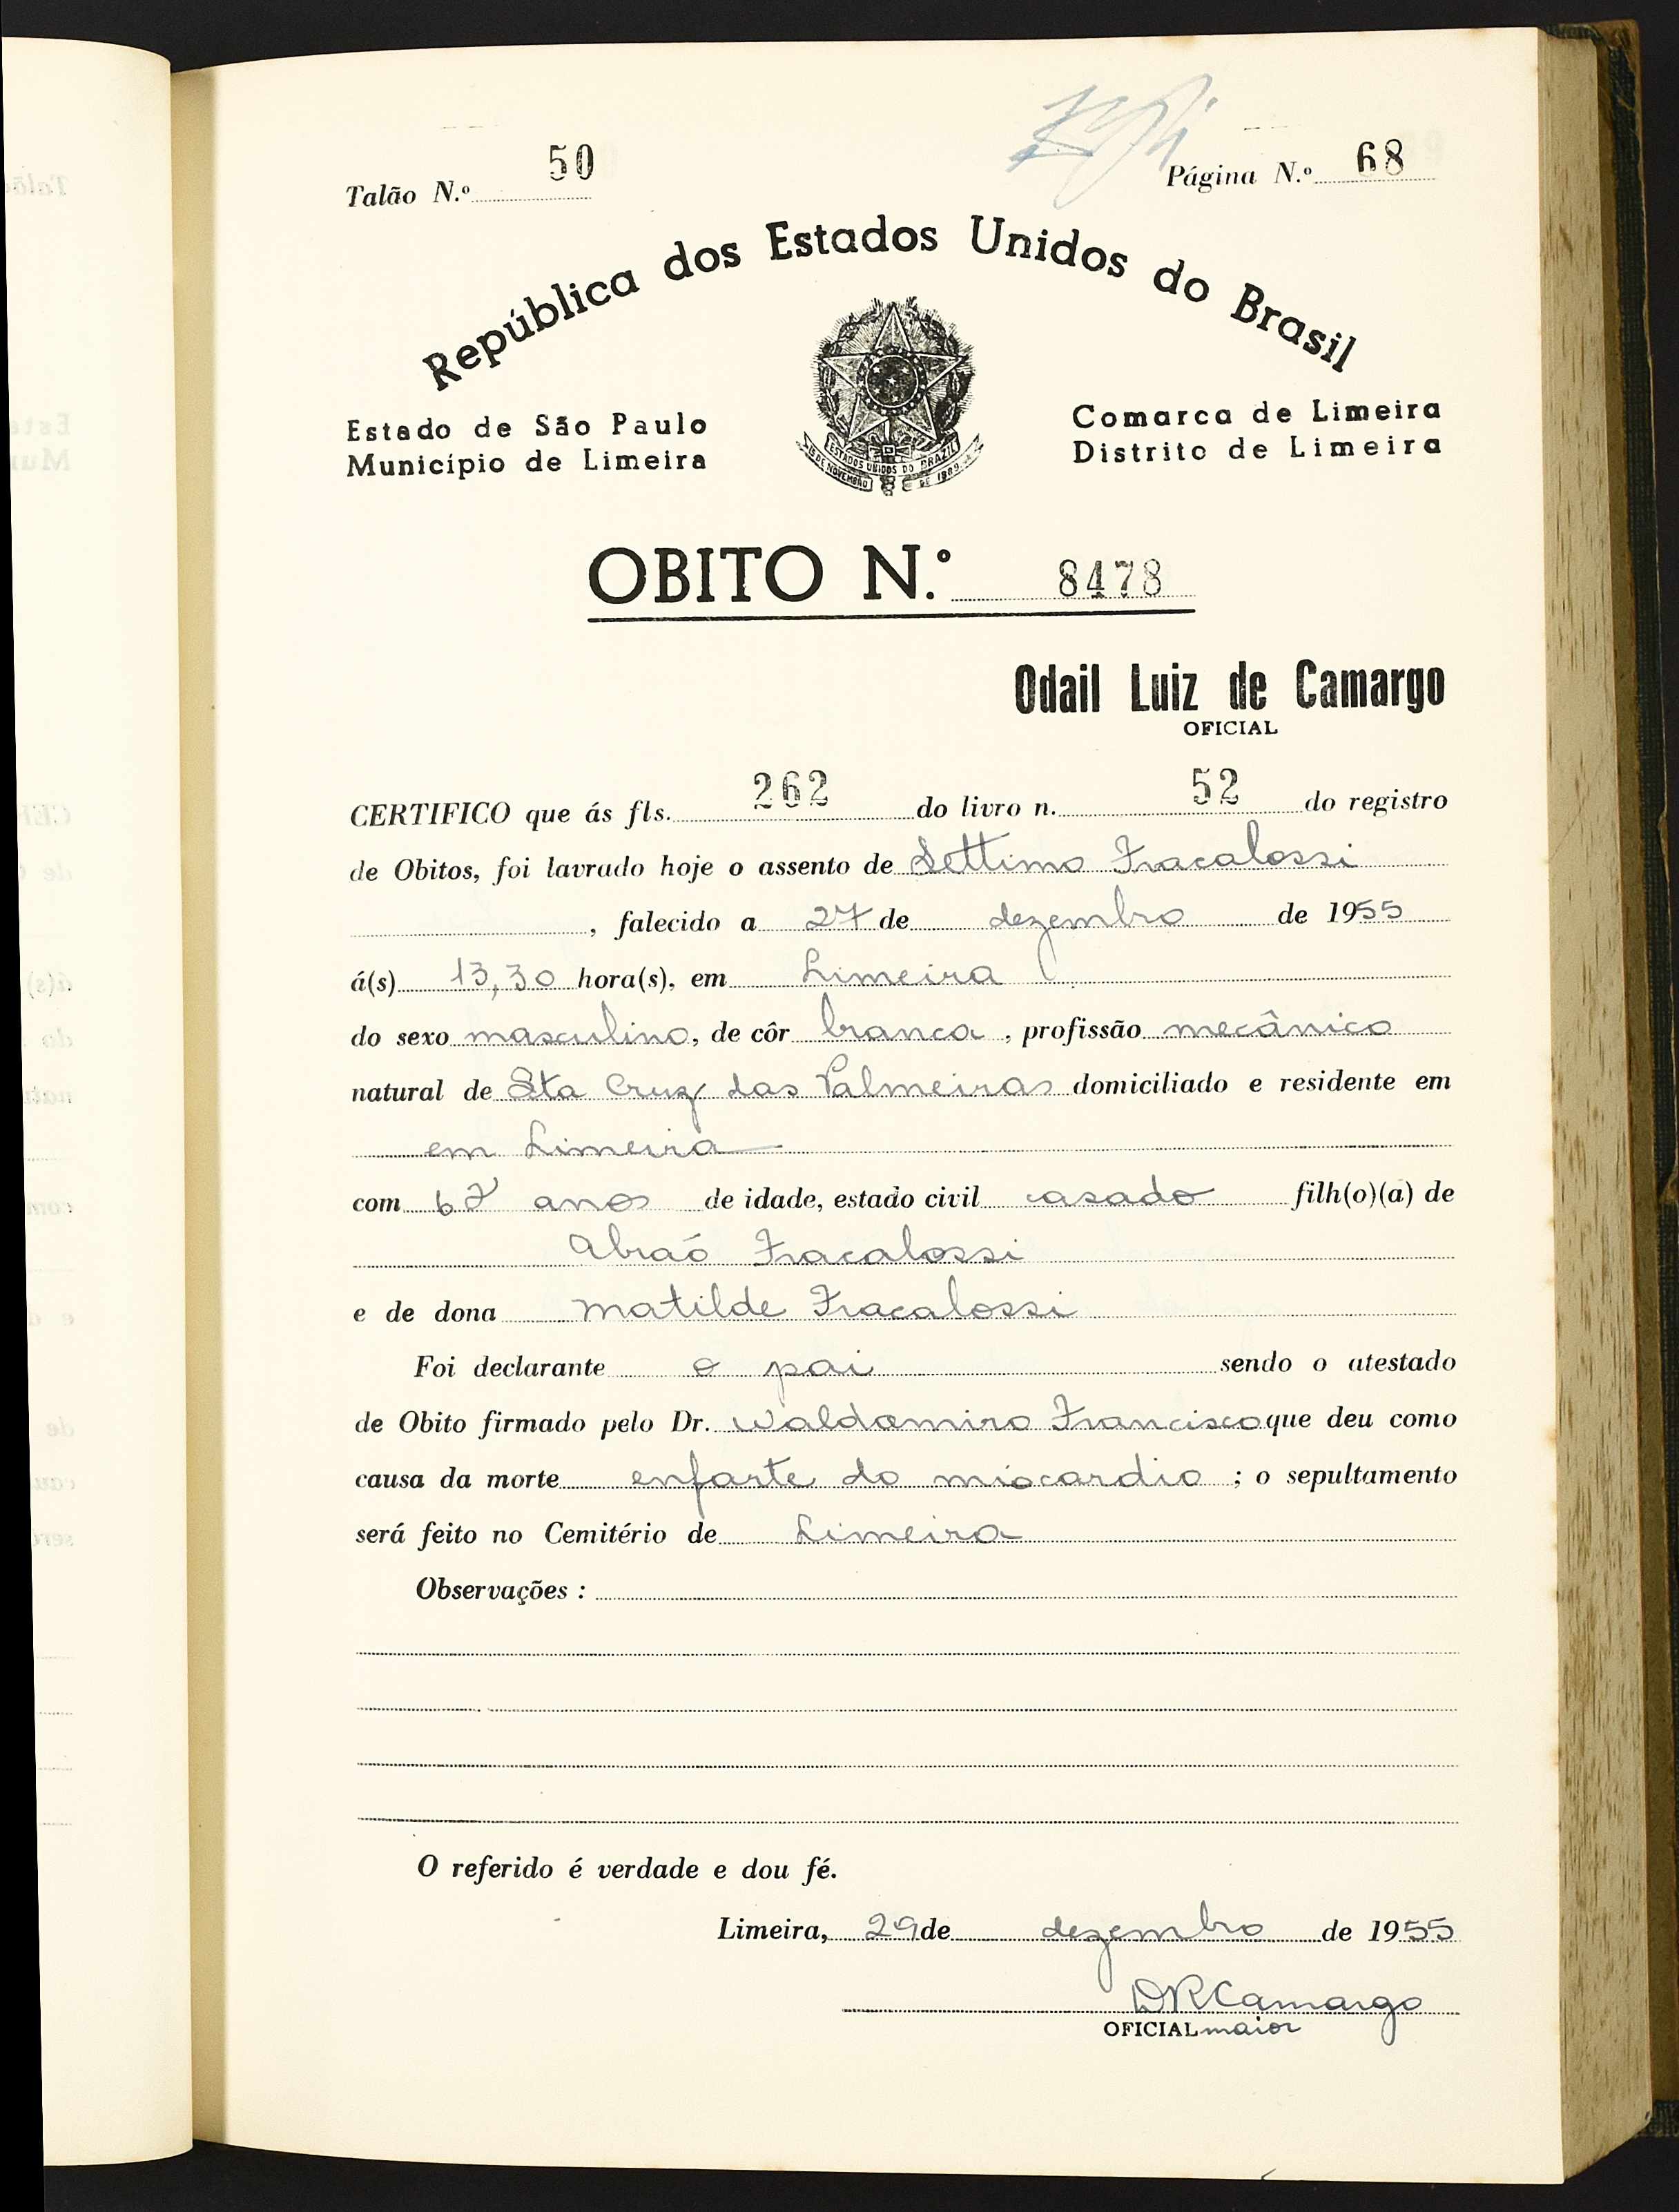 Talão N.º 50
Página N.º 68
República dos Estados Unidos do Brasil
Estado de São Paulo
Município de Limeira
Comarca de Limeira
Distrito de Limeira
ESTADOS UNIDOS DO BRAZIL
15 DE NOVEMBRO DE 1889
OBITO N.º 8478
Odail Luiz de Camargo
OFICIAL
CERTIFICO que ás fls. 262 do livro n. 52 do registro
de Obitos, foi lavrado hoje o assento de Settimo Fracalossi
, falecido a 27 de dezembro de 1955
á(s) 13,30 hora(s), em Limeira
do sexo masculino, de côr branca, profissão mecânico
natural de Sta Cruz das Palmeiras domiciliado e residente em
em Limeira
com anos de idade, estado civil casado filh(o)(a) de
Abraó Fracalossi
e de dona Matilde Fracalossi
Foi declarante o pai sendo o atestado
de Obito firmado pelo Dr. Waldomiro Francisco que deu como
causa da morte enfarte do miocardio ; o sepultamento
será feito no Cemitério de Limeira
Observações :
O referido é verdade e dou fé.
Limeira, 29 de dezembro de 1955
DRCamargo
OFICIAL maior